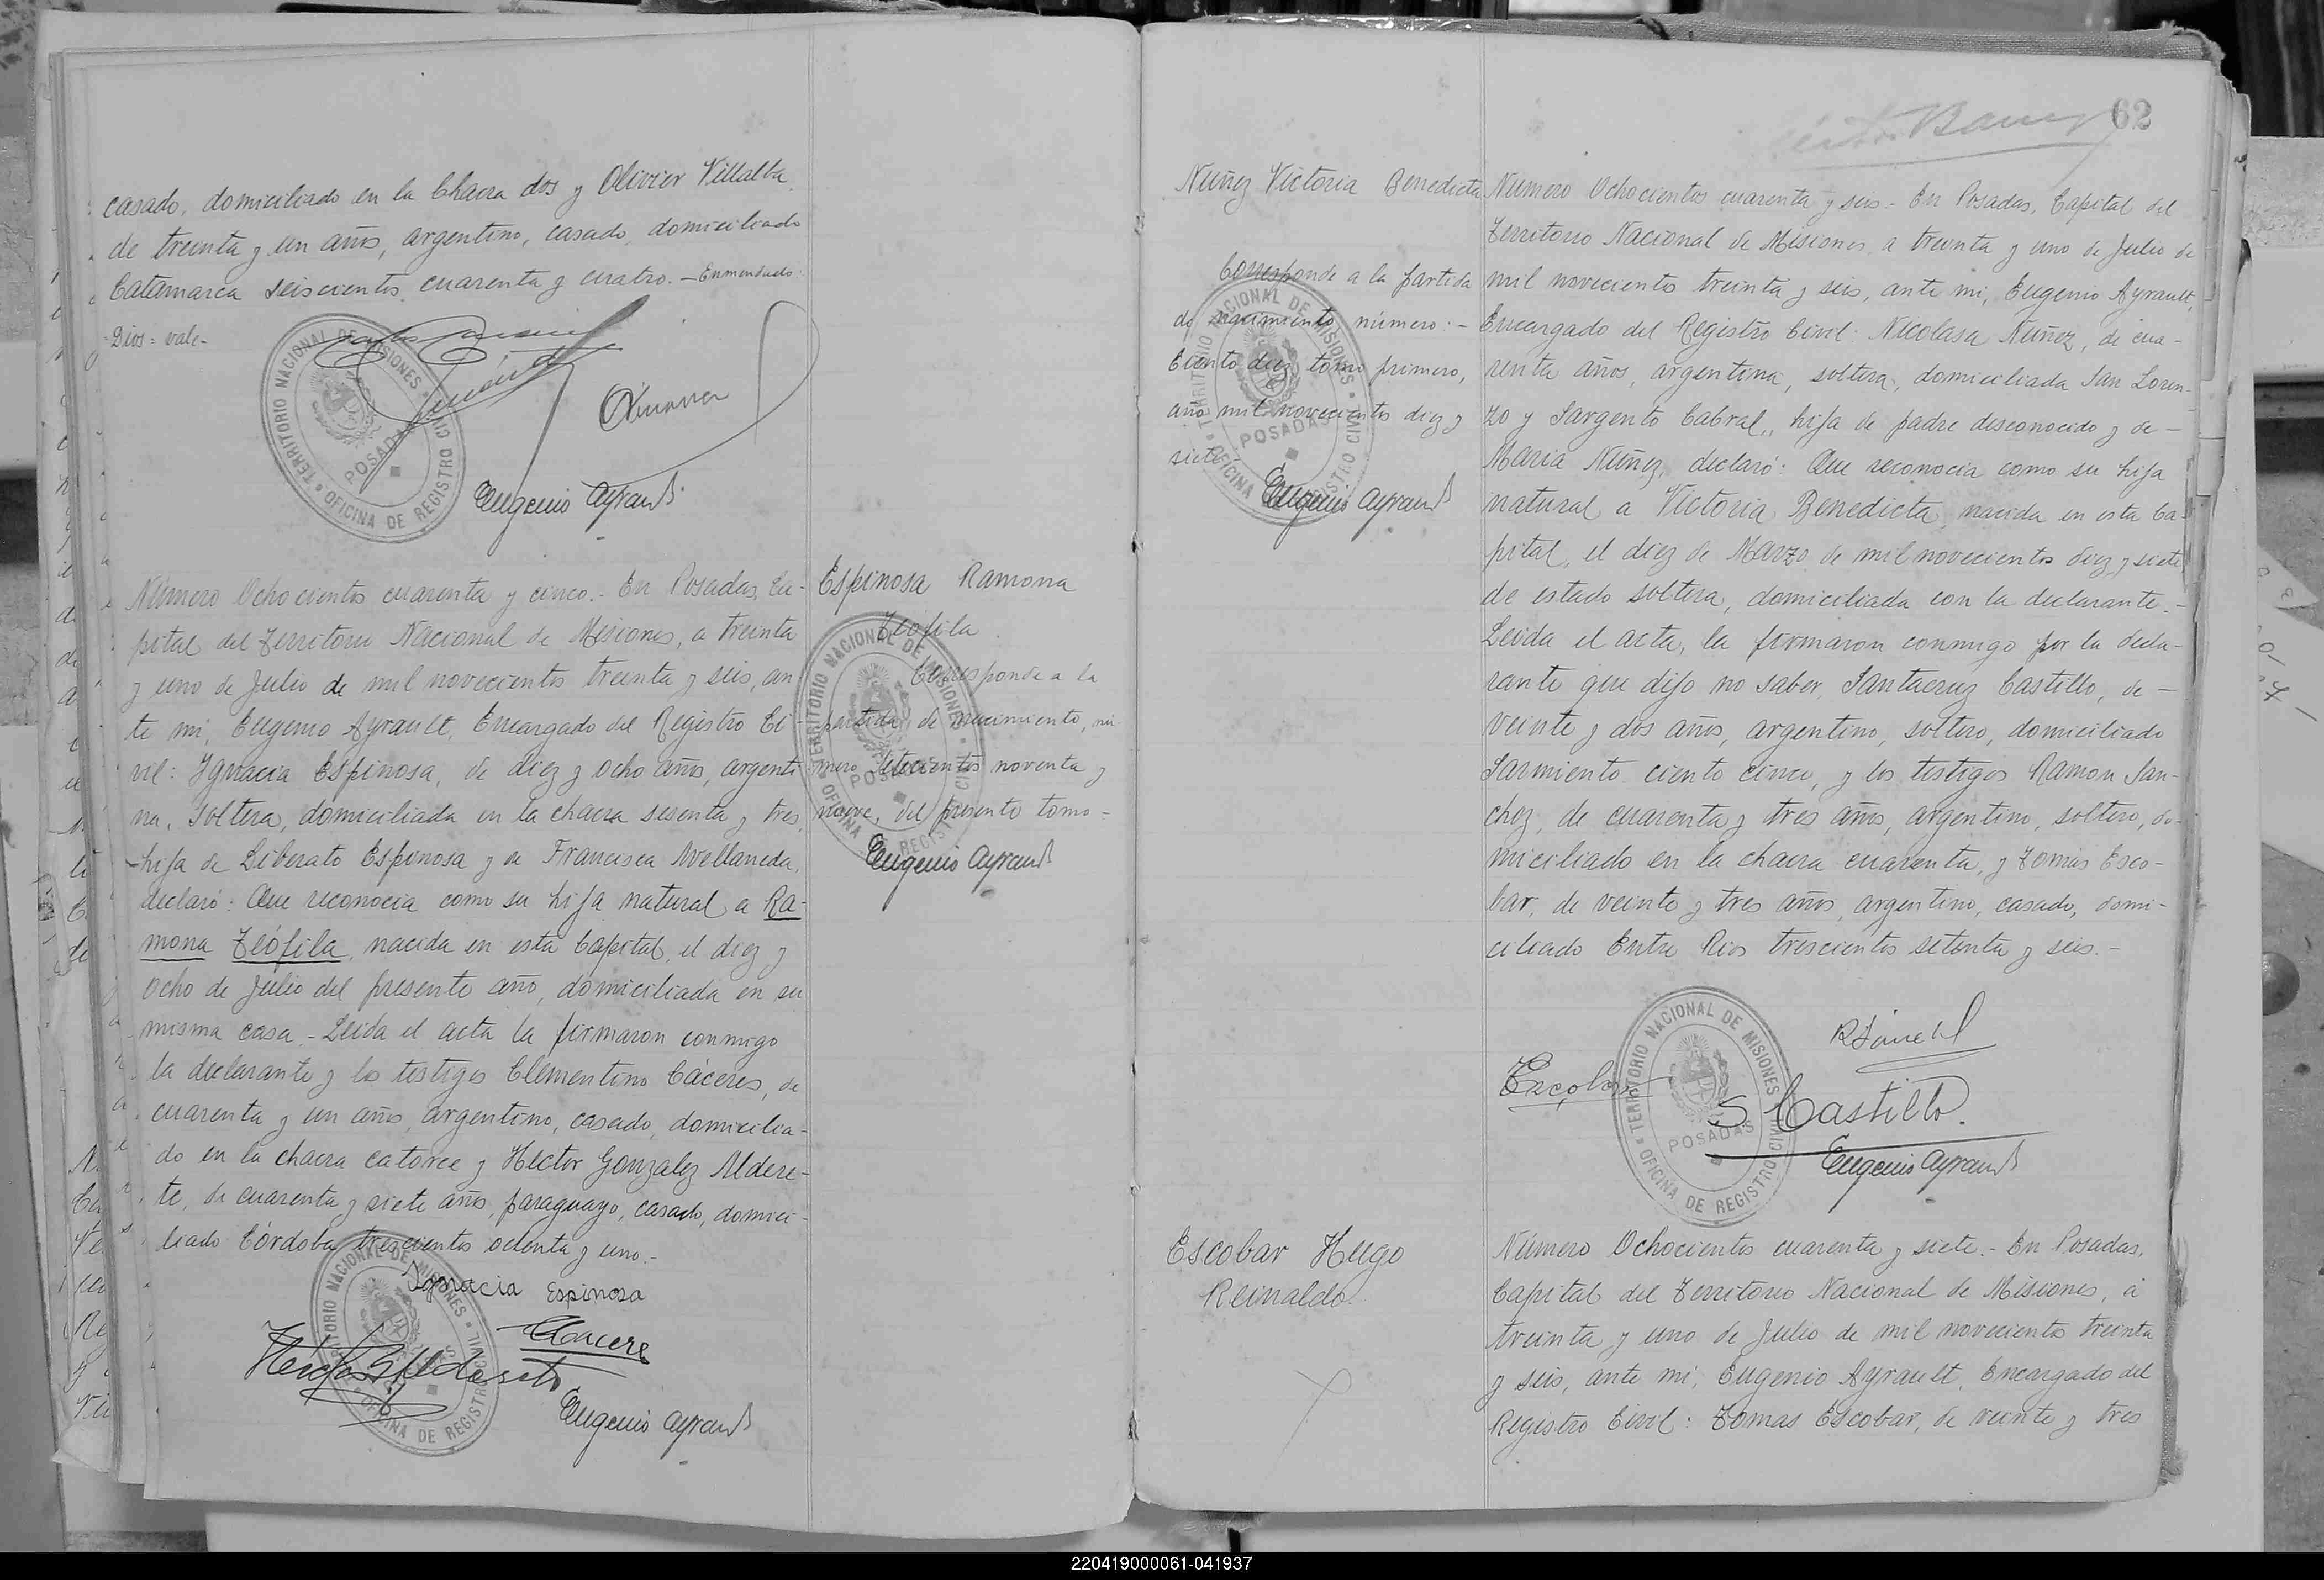 casado, domiciliado en la Chacra dos y Olivier Villalba
de treinta y un años, argentino, casado, domiciliado
Catamarca seiscientos cuarenta y cuatro. - Enmendado:
Dios = vale-
TERRITORIO NACIONAL DE MISIONES
OFICINA DE REGISTRO CIVIL
POSADAS
Eugenio Ayrault
Número Ochocientos cuarenta y cinco.- En Posadas, Ca-
pital del Territorio Nacional de Misiones, a treinta
y uno de Julio de mil novecientos treinta y seis, an-
te mi, Eugenio Ayrault, Encargado del Registro Ci-
vil: Ygnacia Espinosa, de diez y ocho años, argenti-
na, soltera, domiciliada en la chacra sesenta y tres,
hija de Liberato Espinosa y de Francisca Avellaneda,
declaró: Que reconocia como su hija natural a Ra-
mona Teófila, nacida en esta Capital, el diez y
ocho de Julio del presente año, domiciliada en su
misma casa.- Leida el acta la firmaron conmigo
la declarante y los testigos Clementino Cáceres, de
cuarenta y un años, argentino, casado, domicilia-
do en la chacra catorce y Héctor Gonzalez Aldere-
te, de cuarenta y siete años, paraguayo, casado, domici-
liado Córdoba trescientos ochenta y uno.-
Ygnacia Espinosa
Eugenio Ayrault
TERRITORIO NACIONAL DE MISIONES
OFICINA DE REGISTRO CIVIL
Espinosa Ramona
Teófila
Corresponde a la
partida de nacimiento, nú-
mero setecientos noventa y
nueve, del presente tomo-
Eugenio Ayrault
TERRITORIO NACIONAL DE MISIONES
OFICINA DE REGISTRO CIVIL
POSADAS
62
Nuñez Victoria Benedicta
Corresponde a la partida
de nacimiento número: -
Ciento diez tomo primero,
año mil novecientos diez y
siete
Eugenio Ayrault
TERRITORIO NACIONAL DE MISIONES
OFICINA DE REGISTRO CIVIL
POSADAS
Número Ochocientos cuarenta y seis - En Posadas, Capital del
Territorio Nacional de Misiones, a treinta y uno de Julio de
mil novecientos treinta y seis, ante mi, Eugenio Ayrault,
Encargado del Registro Civil: Nicolasa Nuñez, de cua-
renta años, argentina, soltera, domiciliada San Loren-
zo y Sargento Cabral, hija de padre desconocido y de -
Maria Nuñez, declaró: Que reconocia como su hija
natural a Victoria Benedicta, nacida en esta Ca-
pital, el diez de Marzo de mil novecientos diez y siete
de estado soltera, domiciliada con la declarante.-
Leida el acta, la firmaron conmigo por la decla-
rante que dijo no saber, Santacruz Castillo, de -
veinte y dos años, argentino, soltero, domiciliado
Sarmiento ciento cinco, y los testigos Ramon San-
chez, de cuarenta y tres años, argentino, soltero, do-
miciliado en la chacra cuarenta, y Tomás Esco-
bar, de veinte y tres años, argentino, casado, domi-
ciliado Entre Rios trescientos setenta y seis.-
Escobar
S Castillo.
Eugenio Ayrault
TERRITORIO NACIONAL DE MISIONES
OFICINA DE REGISTRO CIVIL
POSADAS
Escobar Hugo
Reinaldo
Número Ochocientos cuarenta y siete.- En Posadas,
Capital del Territorio Nacional de Misiones, á
treinta y uno de Julio de mil novecientos treinta
y seis, ante mi, Eugenio Ayrault, Encargado del
Registro Civil: Tomas Escobar, de veinte y tres
220419000061-041937